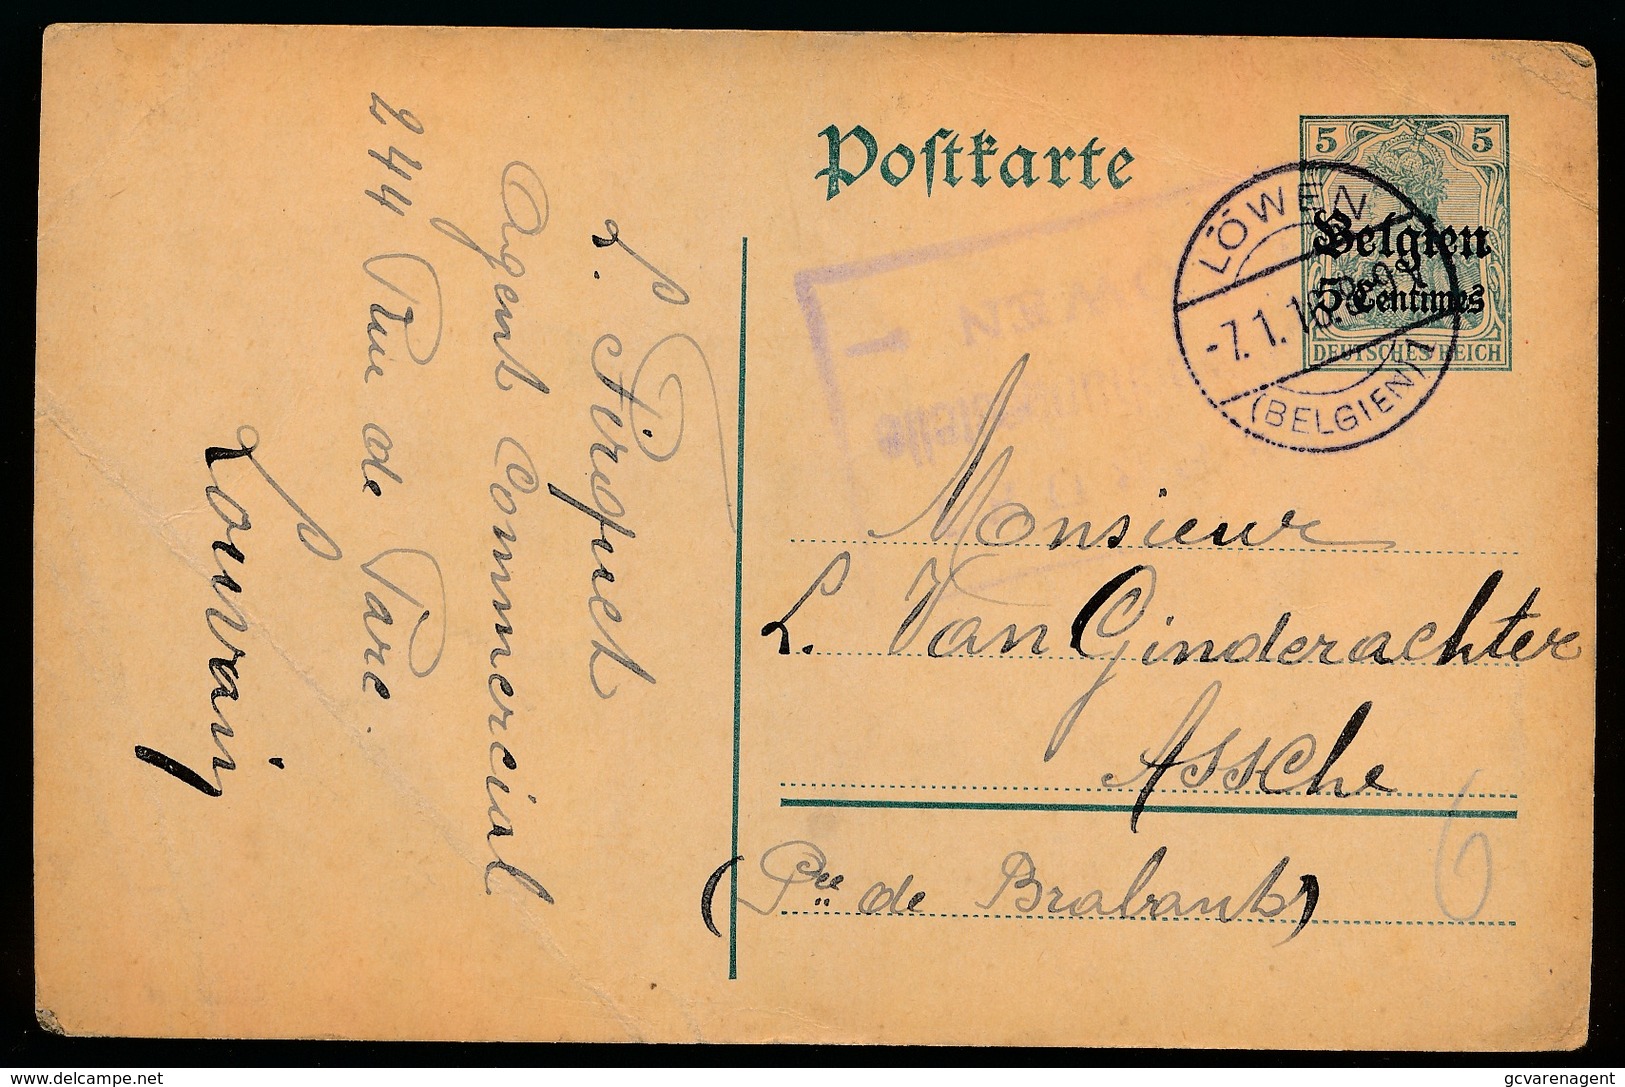 L. Pirquet
Agent Commercial
244 Rue de Parc.
Louvain
Postkarte
5 5
Belgien
5 Centimes
DEUTSCHES REICH
LÖWEN
-7.1.16.8-9
(BELGIEN) 1
Monsieur
L. Van Ginderachter
Assche
(Pce de Brabant)
6
delcampe.net
gcvarenagent